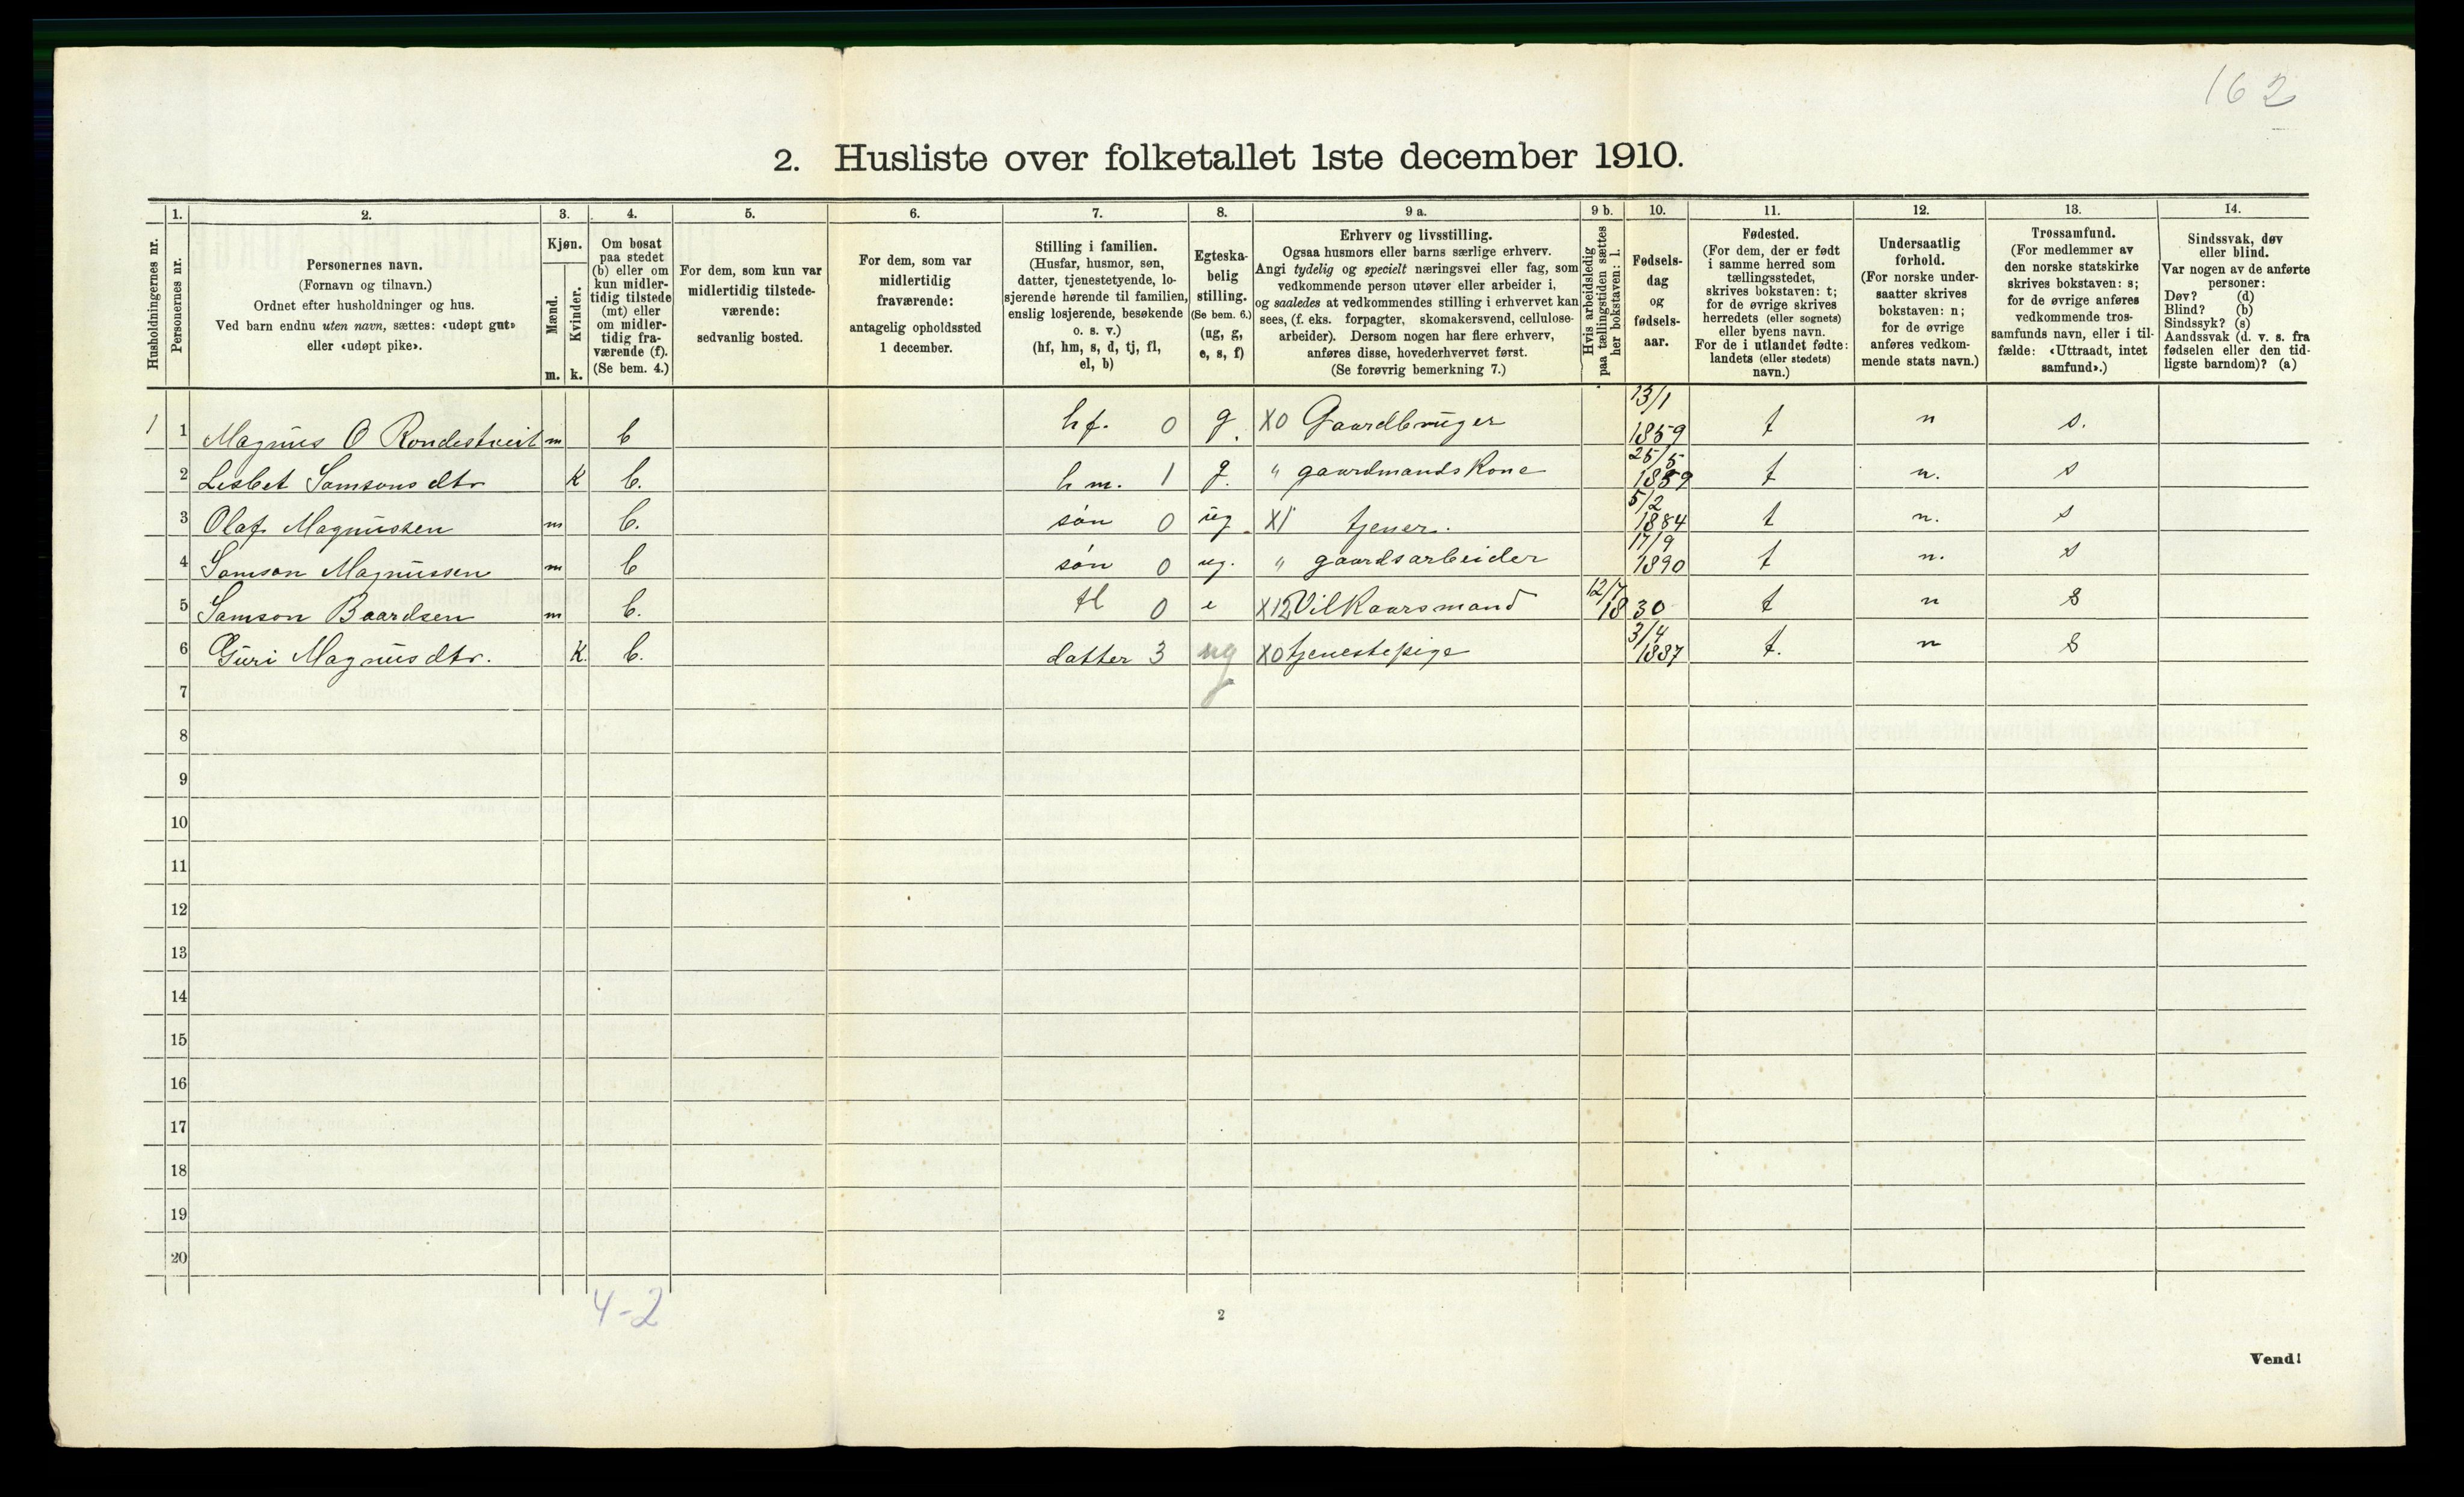 162
2. Husliste over folketallet 1ste december 1910.
Husholdningernes nr.
1.
Personernes nr.
2.
Personernes navn.
(Fornavn og tilnavn.)
Ordnet efter husholdninger og hus.
Ved barn endnu uten navn, sættes: «udøpt gut»
eller «udøpt pike».
3.
Kjøn.
Mænd.
Kvinder.
m. k.
4.
Om bosat
paa stedet
(b) eller om
kun midler-
tidig tilstede
(mt) eller
om midler-
tidig fra-
værende (f).
(Se bem. 4.)
5.
For dem, som kun var
midlertidig tilstede-
værende:
sedvanlig bosted.
6.
For dem, som var
midlertidig
fraværende:
antagelig opholdssted
1 december.
7.
Stilling i familien.
(Husfar, husmor, søn,
datter, tjenestetyende, lo-
sjerende hørende til familien,
enslig losjerende, besøkende
o. s. v.)
(hf, hm, s, d, tj, fl,
el, b)
8.
Egteska-
belig
stilling.
(Se bem. 6.)
(ug, g,
e, s, f)
9 a.
Erhverv og livsstilling.
Ogsaa husmors eller barns særlige erhverv.
Angi tydelig og specielt næringsvei eller fag, som
vedkommende person utøver eller arbeider i,
og saaledes at vedkommendes stilling i erhvervet kan
sees, (f. eks. forpagter, skomakersvend, cellulose-
arbeider). Dersom nogen har flere erhverv,
anføres disse, hovederhvervet først.
(Se forøvrig bemerkning 7.)
9 b.
Hvis arbeidsledig
paa tællingstiden sættes
her bokstaven: l.
10.
Fødsels-
dag
og
fødsels-
aar.
11.
Fødested.
(For dem, der er født
i samme herred som
tællingsstedet,
skrives bokstaven: t;
for de øvrige skrives
herredets (eller sognets)
eller byens navn.
For de i utlandet fødte:
landets (eller stedets)
navn.)
12.
Undersaatlig
forhold.
(For norske under-
saatter skrives
bokstaven: n;
for de øvrige
anføres vedkom-
mende stats navn.)
13.
Trossamfund.
(For medlemmer av
den norske statskirke
skrives bokstaven: s;
for de øvrige anføres
vedkommende tros-
samfunds navn, eller i til-
fælde: «Uttraadt, intet
samfund».)
14.
Sindssvak, døv
eller blind.
Var nogen av de anførte
personer:
Døv? (d)
Blind? (b)
Sindssyk? (s)
Aandssvak (d. v. s. fra
fødselen eller den tid-
ligste barndom)? (a)
1 1 Magnus O Rondestveit m b hf. 0 g. X0 Gaardbruger 13/1 1859 t n s.
2 Lisbet Samsonsdtr k b. hm. 1 g. " gaardmandskone 25/5 1859 t n. s
3 Olaf Magnussen m b. søn 0 ug. X1 tjener. 5/2 1884 t n. s
4 Samson Magnussen m b søn 0 ug. " gaardsarbeider 17/9 1890 t n. s
5 Samson Baardsen m b. fl 0 e X12 Vilkaarsmand 12/7 1830 t n s
6 Guri Magnusdtr. k. b. datter 3 ug X0 tjenestepige 3/4 1887 t. n s
7
8
9
10
11
12
13
14
15
16
17
18
19
20
4-2
2
Vend!